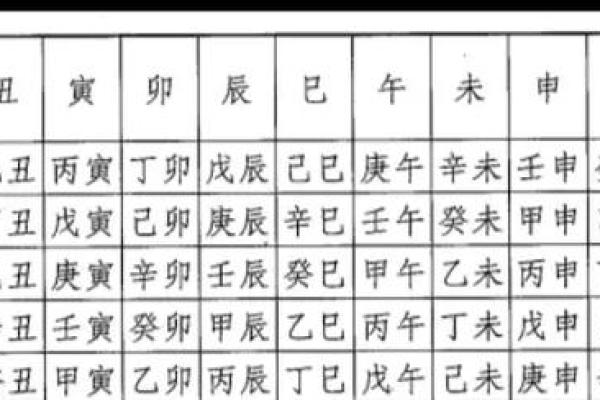 丑 寅 卯 辰 巳 午 未 申
丑 丙寅 丁卯 戊辰 己巳 庚午 辛未 壬申
丑 戊寅 己卯 庚辰 辛巳 壬午 癸未 甲申
丑 庚寅 辛卯 壬辰 癸巳 甲午 乙未 丙申
丑 壬寅 癸卯 甲辰 乙巳 丙午 丁未 戊申
丑 甲寅 乙卯 丙辰 丁巳 戊午 己未 庚申